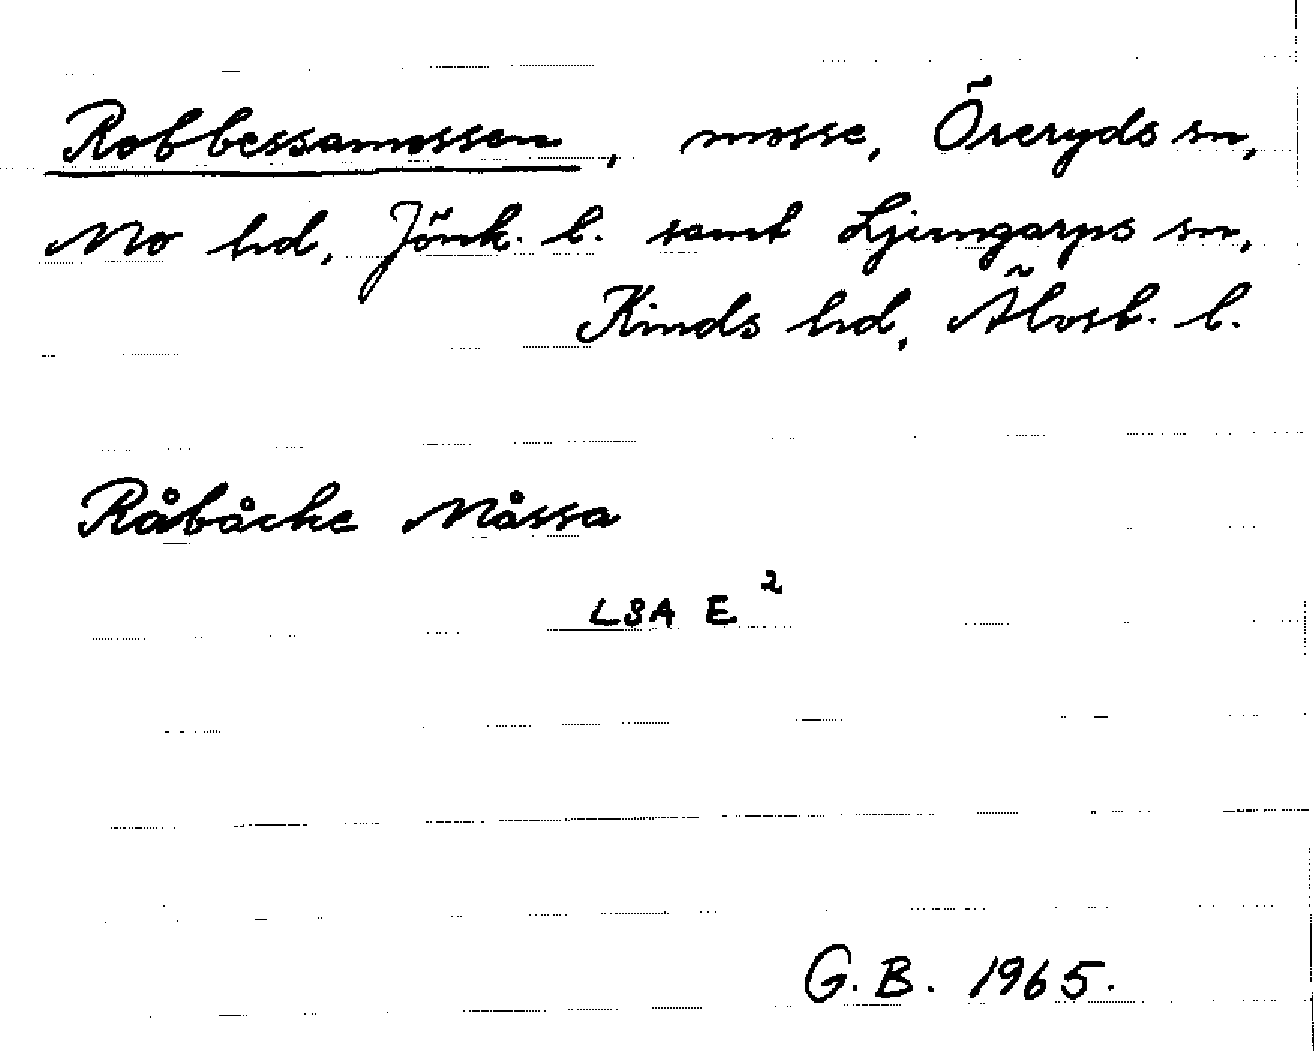 Robbessamossen, mosse, Öreryds sn,
Mo hd, Jönk. l. samt Ljungarps sn,
Kinds hd, Älvsb. l.
Råbåcke Måssa
LSA E 2
G.B. 1965.